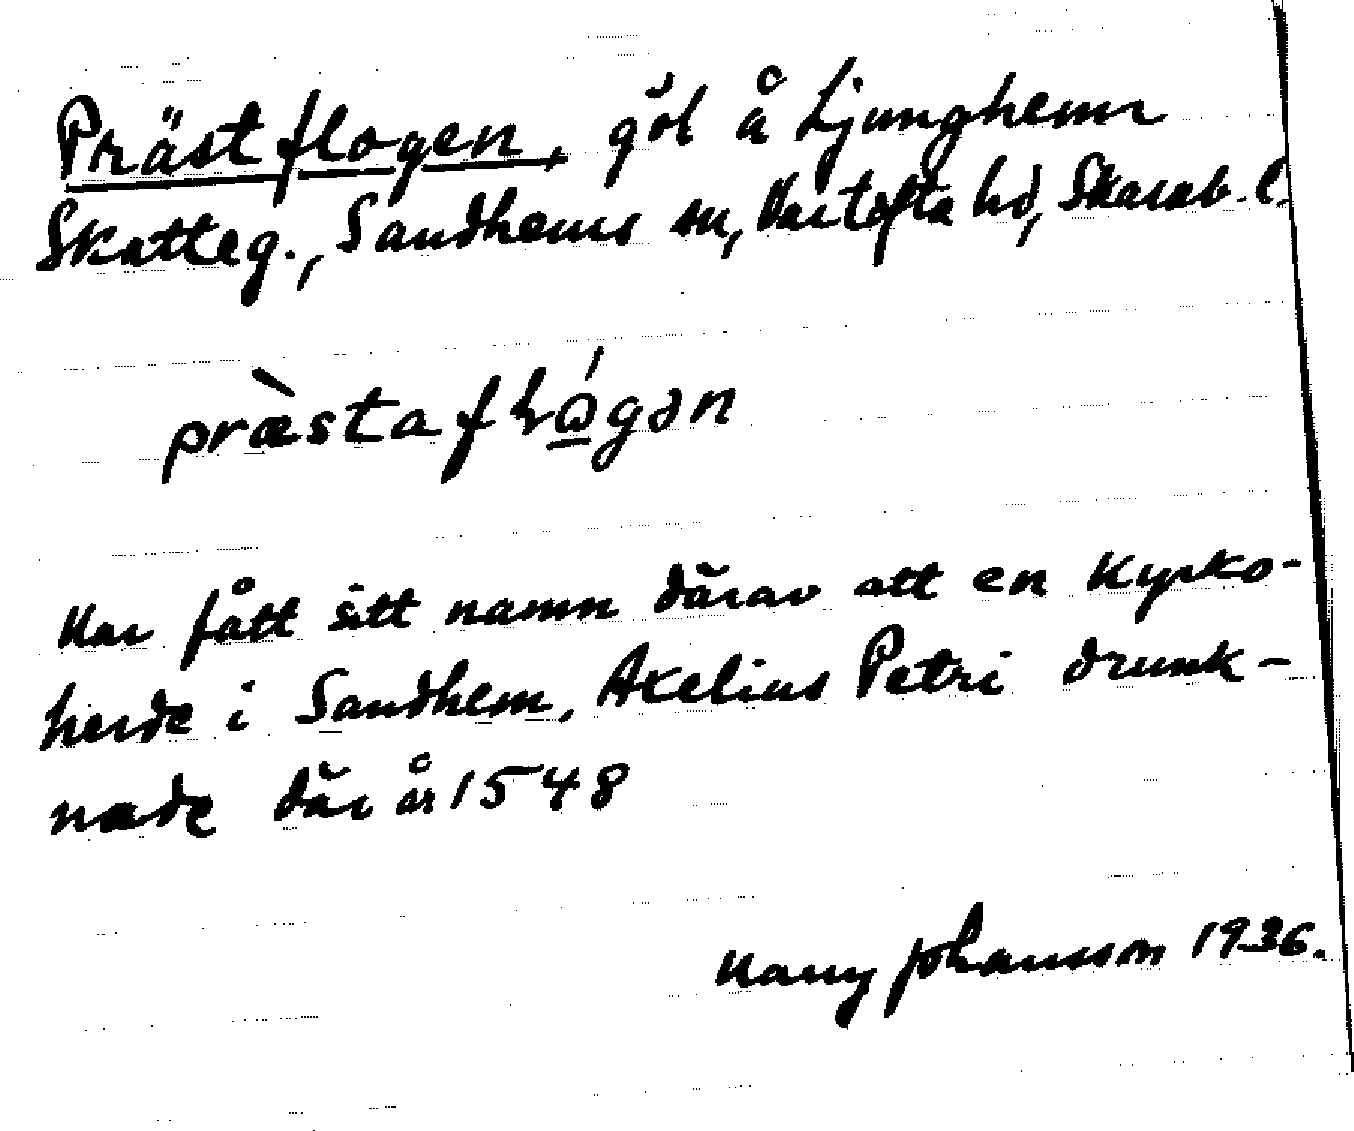 Prästflogen, göl å Ljunghems
Skatteg., Sandhems sn, Vartofta hd, Skarab. l.
præ̀staflǫ́gən
Har fått sitt namn därav att en kyrko-
herde i Sandhem, Axelius Petri drunk-
nade där år 1548
Harry Johansson 1936.